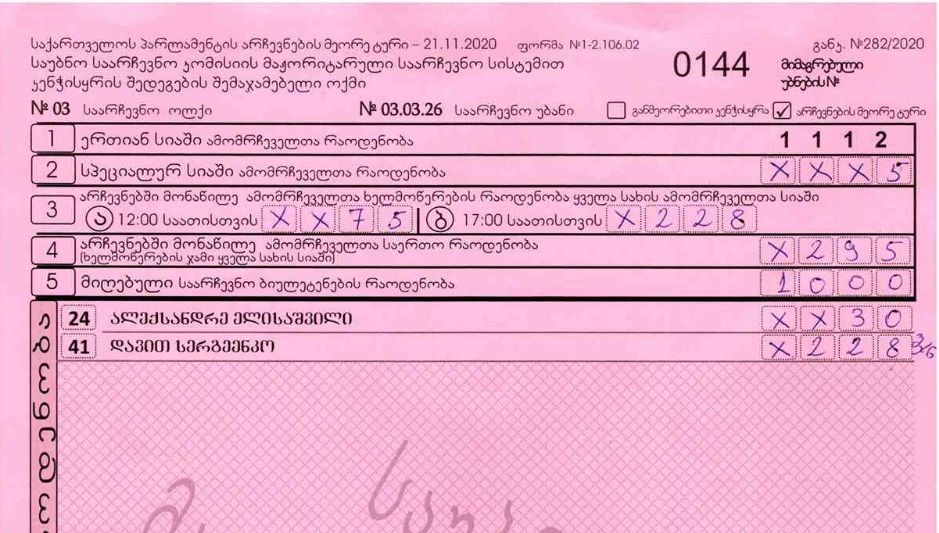 საქართველოს პარლამენტის არჩევნების მეორე ტური – 21.11.2020 ფორმა №1-2.106.02 განკ. №282/2020
საუბნო საარჩევნო კომისიის მაჟორიტარული საარჩევნო სისტემით 0144 მიმაგრებული
კენჭისყრის შედეგების შემაჯამებელი ოქმი უბნების№
№ 03 საარჩევნო ოლქი № 03.03.26 საარჩევნო უბანი განმეორებითი კენჭისყრა ✓ არჩევნების მეორე ტური
1 ერთიან სიაში ამომრჩეველთა რაოდენობა 1 1 1 2
2 სპეციალურ სიაში ამომრჩეველთა რაოდენობა X X X 5
არჩევნებში მონაწილე ამომრჩეველთა ხელმოწერების რაოდენობა ყველა სახის ამომრჩეველთა სიაში
3 ა 12:00 საათისთვის X X 7 5 ბ 17:00 საათისთვის X 2 2 8
4 არჩევნებში მონაწილე ამომრჩეველთა საერთო რაოდენობა X 2 9 5
(ხელმოწერების ჯამი ყველა სახის სიაში)
5 მიღებული საარჩევნო ბიულეტენების რაოდენობა 1 0 0 0
24 ალექსანდრე ელისაშვილი X X 3 0
41 დავით სერგეენკო X 2 2 8